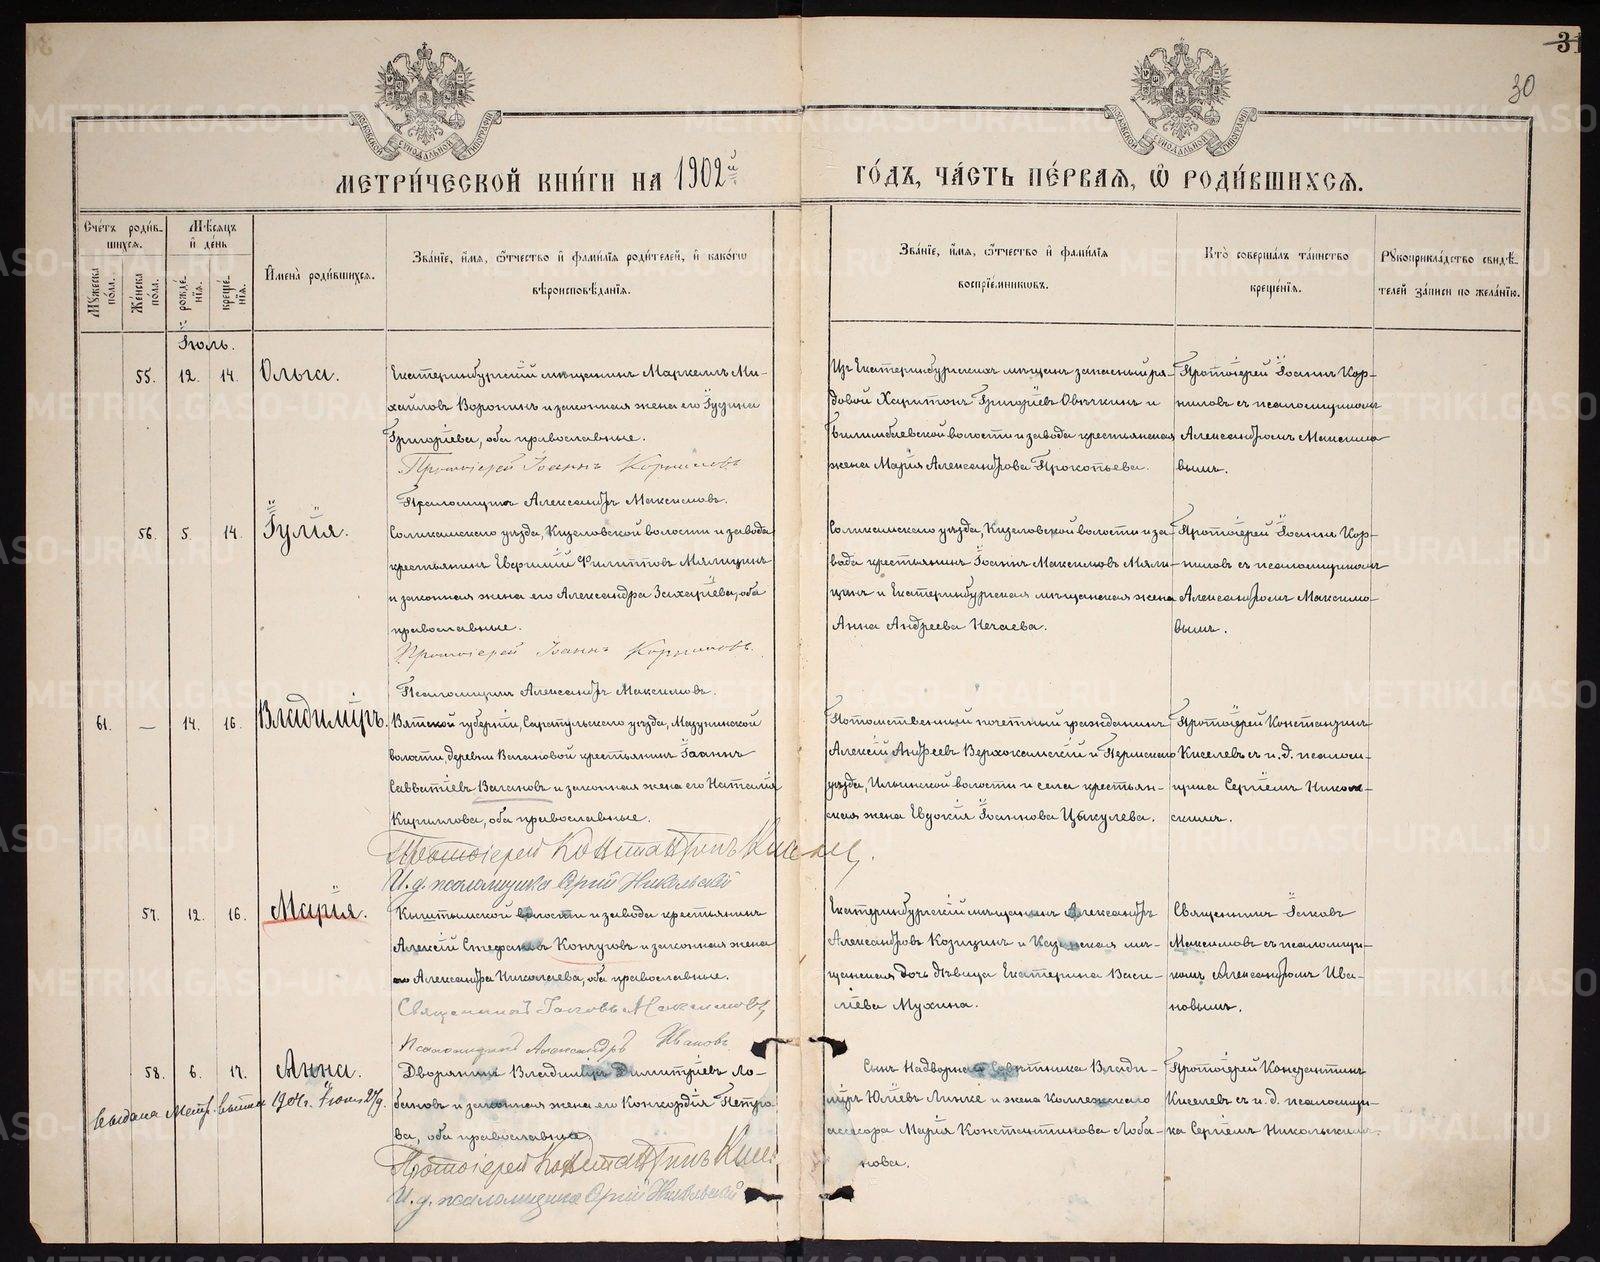 31
30
МЕТРИ́ЧЕСКОЙ КНИ́ГИ НА 1902й
ГО́ДЪ, ЧА́СТЬ ПЕ́РВАѦ, Ѽ РОДИ́ВШИХСѦ.
Сче́тъ роди́в-
шихсѧ.
Мꙋжеска по́ла.
Же́нска по́ла.
Мѣ́сѧцъ
и҆ де́нь
рожде́-
нїѧ.
креще́-
нїѧ.
И҆мена̀ роди́вшихсѧ.
Зва́нїе, и҆́мѧ, ѻ҆́тчество и҆ фами́лїѧ роди́телей, и҆ како́гѡ
вѣроисповѣ́данїѧ.
Зва́нїе, и҆́мѧ, ѻ҆́тчество и҆ фами́лїѧ
воспрїе́мникѡвъ.
Кто̀ соверша́лъ та́инство
креще́нїѧ.
Рꙋкоприкла́дство свидѣ́-
телей за́писи по жела́нїю.
Іюль.
55. 12. 14. Ольга.
Екатеринбургскій мѣщанинъ Маркеллъ Ми-
хаиловъ Воронинъ и законная жена его
Григоріева, оба православные.
Протоіерей Іоаннъ Корниловъ
Псаломщикъ Александръ Максимовъ.
Изъ Екатеринбургскихъ мѣщанъ запасный ря-
довой Харитонъ Григоріевъ Овчкинъ и
Билимбаевской волости и завода крестьянская
жена Марія Александрова Прокопьева.
Протоіерей Іоаннъ Кор-
ниловъ съ псаломщикомъ
Александромъ Максимо-
вымъ.
56. 5. 14. Іулія.
Соликамскаго уѣзда, Кизеловской волости и завода
крестьянинъ Евфимій Филипповъ Мялицинъ
и законная жена его Александра Захаріева, оба
православные.
Протоіерей Іоаннъ Корниловъ.
Псаломщикъ Александръ Максимовъ.
Соликамскаго уѣзда, Кизеловской волости и за-
вода крестьянинъ Іоаннъ Максимовъ Мяли-
цинъ и Екатеринбургская мѣщанская жена
Анна Андреева Нечаева.
Протоіерей Іоаннъ Кор-
ниловъ съ псаломщикомъ
Александромъ Максимо-
вымъ.
61. — 14. 16. Владиміръ.
Вятской губерніи, Сарапульскаго уѣзда, Мазунинской
волости, деревни Вагановой крестьянинъ Іоаннъ
Савватіевъ Вагановъ и законная жена его Наталія
Кириллова, оба православные.
Протоіерей Константинъ Киселевъ.
И. д. псаломщика Сергій Никольскій
Потомственный почетный гражданинъ
Алексій Андреевъ Верхокамскій и Пермскаго
уѣзда, Ильинской волости и села крестьян-
ская жена Евдокія Іоаннова Цыкулева.
Протоіерей Константинъ
Киселевъ съ и. д. псалом-
щика Сергіемъ Николь-
скимъ.
57. 12. 16. Марія.
Кыштымской волости и завода крестьянинъ
Алексій Стефановъ Кончуговъ и законная жена
его Александра Николаева, оба православные.
Священникъ Іаковъ Максимовъ
Псаломщикъ Александръ Ивановъ
Екатеринбургскій мѣщанинъ Александръ
Александровъ Козицинъ и Казанская мѣ-
щанская дочь дѣвица Екатерина Васи-
ліева Мухина.
Священникъ Іаковъ
Максимовъ съ псаломщи-
комъ Александромъ Ива-
новымъ.
58. 6. 17. Анна.
Выдана Метр. выпись 1904 г. Іюня 27 д.
Дворянинъ Владиміръ Димитріевъ Ло-
бановъ и законная жена его Конкордія Петро-
ва, оба православные.
Протоіерей Константинъ Кисе
И. д. псаломщика Сергій Никольскій
Сынъ Надворнаго Совѣтника Влади-
міръ Юліевъ Линке и жена Коллежскаго
ассесора Марія Константинова Лоба-
нова.
Протоіерей Константинъ
Киселевъ съ и. д. псаломщи-
ка Сергіемъ Никольскимъ.
METRIKI.GASO-URAL.RU